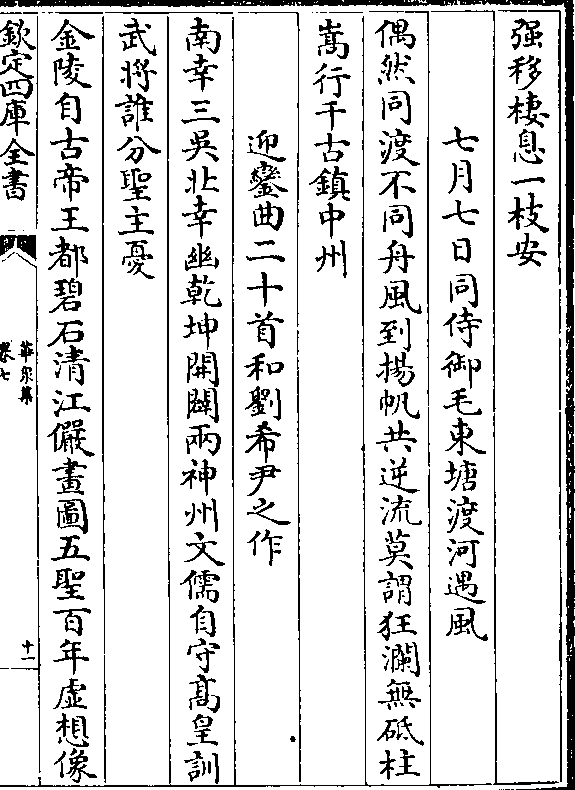 强移棲息一枝安
七月七日同侍御毛東塘渡河遇風
偶然同渡不同舟風到揚帆共逆流莫謂狂瀾無砥柱
嵩行千古鎮中州
迎鑾曲二十首和劉希尹之作
南幸三吳北幸幽乾坤開闢兩神州文儒自守髙皇訓
武將誰分聖主憂
金陵自古帝王都碧石清江儼畫圖五聖百年虚想像
欽定四庫全書
卷七
十一